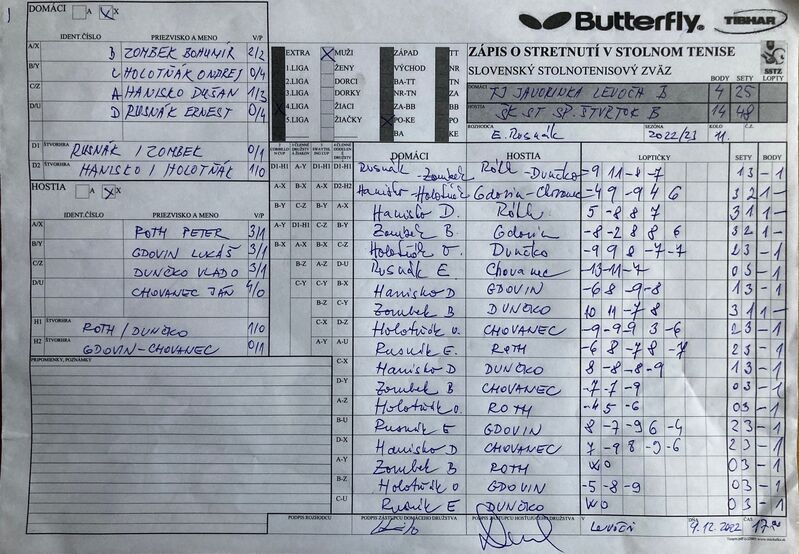 DOMÁCI A X
IDENT.ČÍSLO PRIEZVISKO A MENO V/P
A/X B ZOMBEK BOHUMÍR 2/2
B/Y C HOLOTŇÁK ONDREJ 0/4
C/Z A HANISKO DUŠAN 1/3
D/U D RUSNÁK ERNEST 0/4
D1 ŠTVORHRA RUSNÁK / ZOMBEK 0/1
D2 ŠTVORHRA HANISKO / HOLOTŇÁK 1/0
HOSTIA A X
IDENT.ČÍSLO PRIEZVISKO A MENO V/P
A/X ROTH PETER 3/1
B/Y GDOVIN LUKÁŠ 3/1
C/Z DUNČKO VLADO 3/1
D/U CHOVANEC JÁN 4/0
H1 ŠTVORHRA ROTH / DUNČKO 1/0
H2 ŠTVORHRA GDOVIN-CHOVANEC 0/1
PRIPOMIENKY, POZNÁMKY
EXTRA X MUŽI ZÁPAD TT
1.LIGA ŽENY VÝCHOD NR
2.LIGA DORCI BA-TT TN
3.LIGA DORKY NR-TN ZA
X 4.LIGA ŽIACI ZA-BB BB
5.LIGA ŽIAČKY X PO-KE PO
BA KE
Butterfly. TIBHAR
ZÁPIS O STRETNUTÍ V STOLNOM TENISE
SLOVENSKÝ STOLNOTENISOVÝ ZVÄZ SSTZ
BODY SETY LOPTY
DOMÁCI TJ JAVORINKA LEVOČA B 4 25
HOSTIA ŠK ST SP. ŠTVRTOK B 14 48
E. Rusnák SEZÓNA 2022/23 KOLO 11. Č.
DOMÁCI HOSTIA LOPTIČKY SETY BODY
D1-H1 Rusnák - Zombek Róth - Dunčko -9 11 -8 -7 1 3 -1
D2-H2 Hanisko - Holotňák Gdovin - Chovanec -4 9 -9 4 6 3 2 1 -
A-X Hanisko D. Róth 5 -8 8 7 3 1 1 -
B-Y Zombek B. Gdovin -8 -2 8 8 6 3 2 1 -
C-Z Holotňák O. Dunčko -9 9 8 -7 -7 2 3 -1
D-U Rusnák E. Chovanec -13 -11 -7 0 3 -1
A-Y Hanisko D GDOVIN -6 8 -9 -8 1 3 -1
B-Z Zombek B DUNČKO 10 11 -7 8 3 1 1 -
C-Y Holotňák O. CHOVANEC -9 -9 9 3 -6 2 3 -1
Rusnák E. ROTH -6 8 -7 8 -7 2 3 -1
C-X Hanisko D DUNČKO 8 -8 -8 -9 1 3 -1
D-Y Zombek B CHOVANEC -7 -7 -9 0 3 -1
A-Z Holotňák O. ROTH -4 5 -6 0 3 -1
B-U Rusnák E GDOVIN 8 -7 -9 6 -4 2 3 -1
D-X Hanisko D CHOVANEC 7 -9 8 -9 -6 2 3 -1
A-Y Zombek B ROTH WO 0 3 -1
B-Z Holotňák O GDOVIN -5 -8 -9 0 3 -1
C-U Rusnák E DUNČKO WO 0 3 -1
PODPIS ROZHODCU PODPIS ZÁSTUPCU DOMÁCEHO DRUŽSTVA PODPIS ZÁSTUPCU HOSŤUJÚCEHO DRUŽSTVA V Levoči DŇA 9.12.2022 ČAS